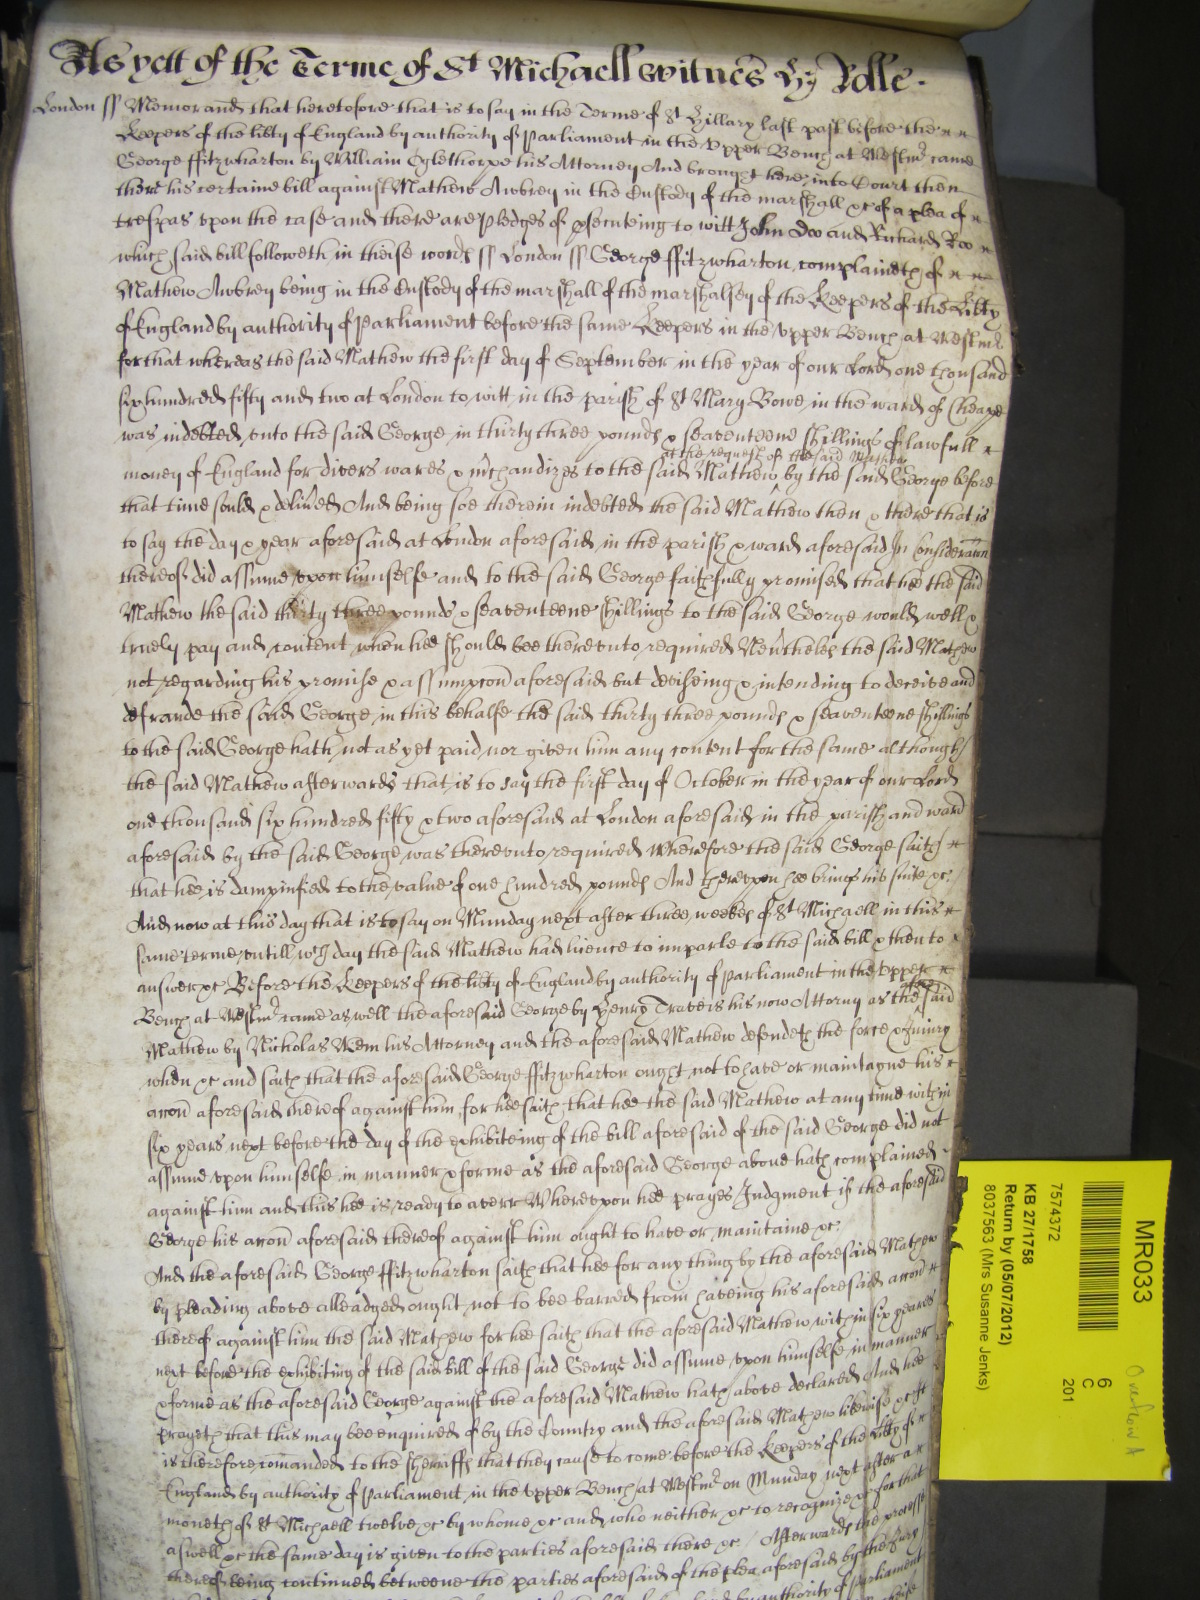 As yett of the Terme of St Michaell witnes Hy Rolle
London ss Memorand that heretofore that is to say in the Terme of St Hillary last past before the
Keepers of the libty of England by authority of Parliament in the Upper Bench at Westmr came
George ffitzwharton by William Oglethorpe his Attorney And brought here into Court then
there his certaine bill against Mathew Awbrey in the Custody of the marshall &c of a plea of
trespas upon the case and there are pledges of psecuteing to witt John Doo and Richard Roo
which said bill followeth in theise words ss London ss George ffitzwharton complaineth of
Mathew Awbrey being in the Custody of the marshall of the marshalsey of the Keepers of the Libty
of England by authority of Parliament before the same Keepers in the Upper Bench at Westmr
for that whereas the said Mathew the first day of September in the year of our Lord one thousand
six hundred fifty and two at London to witt in the parish of St Mary Bowe in the ward of Cheape
was indebted unto the said George in thirty three pounds & seaventeene shillings of lawfull
at the request of the said Mathew
money of England for divers wares & mchandizes to the said Mathew by the said George before
that time sould & delived And being soe therein indebted the said Mathew then & there that is
to say the day & year aforesaid at London aforesaid in the parish & ward aforesaid In consideracon
thereof did assume upon himselfe and to the said George faithfully promised that hee the said
Mathew the said thirty three pounds & seaventeene shillings to the said George would well &
truely pay and content when hee should bee thereunto required Nevtheles the said Mathew
not regarding his promise & assumpcon aforesaid but deviseing & intending to deceive and
defraude the said George in this behalfe the said thirty three pounds & seaventeene shillings
to the said George hath not as yet paid nor given him any content for the same although
the said Mathew afterwards that is to say the first day of October in the year of our Lord
one thousand six hundred fifty & two aforesaid at London aforesaid in the parish and ward
aforesaid by the said George was thereunto required Wherefore the said George saith
that hee is dampnified to the value of one hundred pounds And thereupon hee brings his suite &c
And now at this day that is to say on Munday next after three weekes of St Michaell in this
same terme untill wch day the said Mathew had licence to imparle to the said bill & then to
answer &c Before the Keepers of the libty of England by authority of Parliament in the Upper
Bench at Westmr came as well the aforesaid George by Henry Travers his now Attorny as the said
Mathew by Nicholas Wem his Attorney and the aforesaid Mathew defendeth the force & iniury
when &c and saith that the aforesaid George ffitzwharton ought not to have or maintayne his
accon aforesaid thereof against him for hee saith that hee the said Mathew at any time within
six years next before the day of the exhibiteing of the bill aforesaid of the said George did not
assume upon himselfe in manner & forme as the aforesaid George above hath complained
against him and this hee is ready to averr Whereupon hee prayes Judgment if the aforesaid
George his accon aforesaid thereof against him ought to have or maintaine &c
And the aforesaid George ffitzwharton saith that hee for any thing by the aforesaid Mathew
by pleading above alleadged ought not to bee barred from haveing his aforesaid accon
thereof against him the said Mathew for hee saith that the aforesaid Mathew within six yeares
next before the exhibiting of the said bill of the said George did assume upon himselfe in manner
& forme as the aforesaid George against the aforesaid Mathew hath above declared And hee
prayeth that this may bee enquired of by the Country and the aforesaid Mathew likewise &c It
is therefore comanded to the sherriffs that they cause to come before the Keepers of the libty of
England by authority of Parliament in the Upper Bench at Westmr on Munday next after a
moneth of St Michaell twelve &c by whome &c and who neither &c to recognize &c for that
aswell &c the same day is given to the parties aforesaid there &c Afterwards the processe
thereof being continued betweene the parties aforesaid of the plea aforesaid by the Jury
by authority of Parliament
MR033
7574372
KB 27/1758
Return by (05/07/2012)
8037563 (Mrs Susanne Jenks)
6
C
201
Overflow A